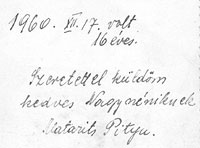 1960. VII. 17. volt
16 éves.
Szeretettel küldöm
kedves Nagynéniknek
Matarits Pityu.